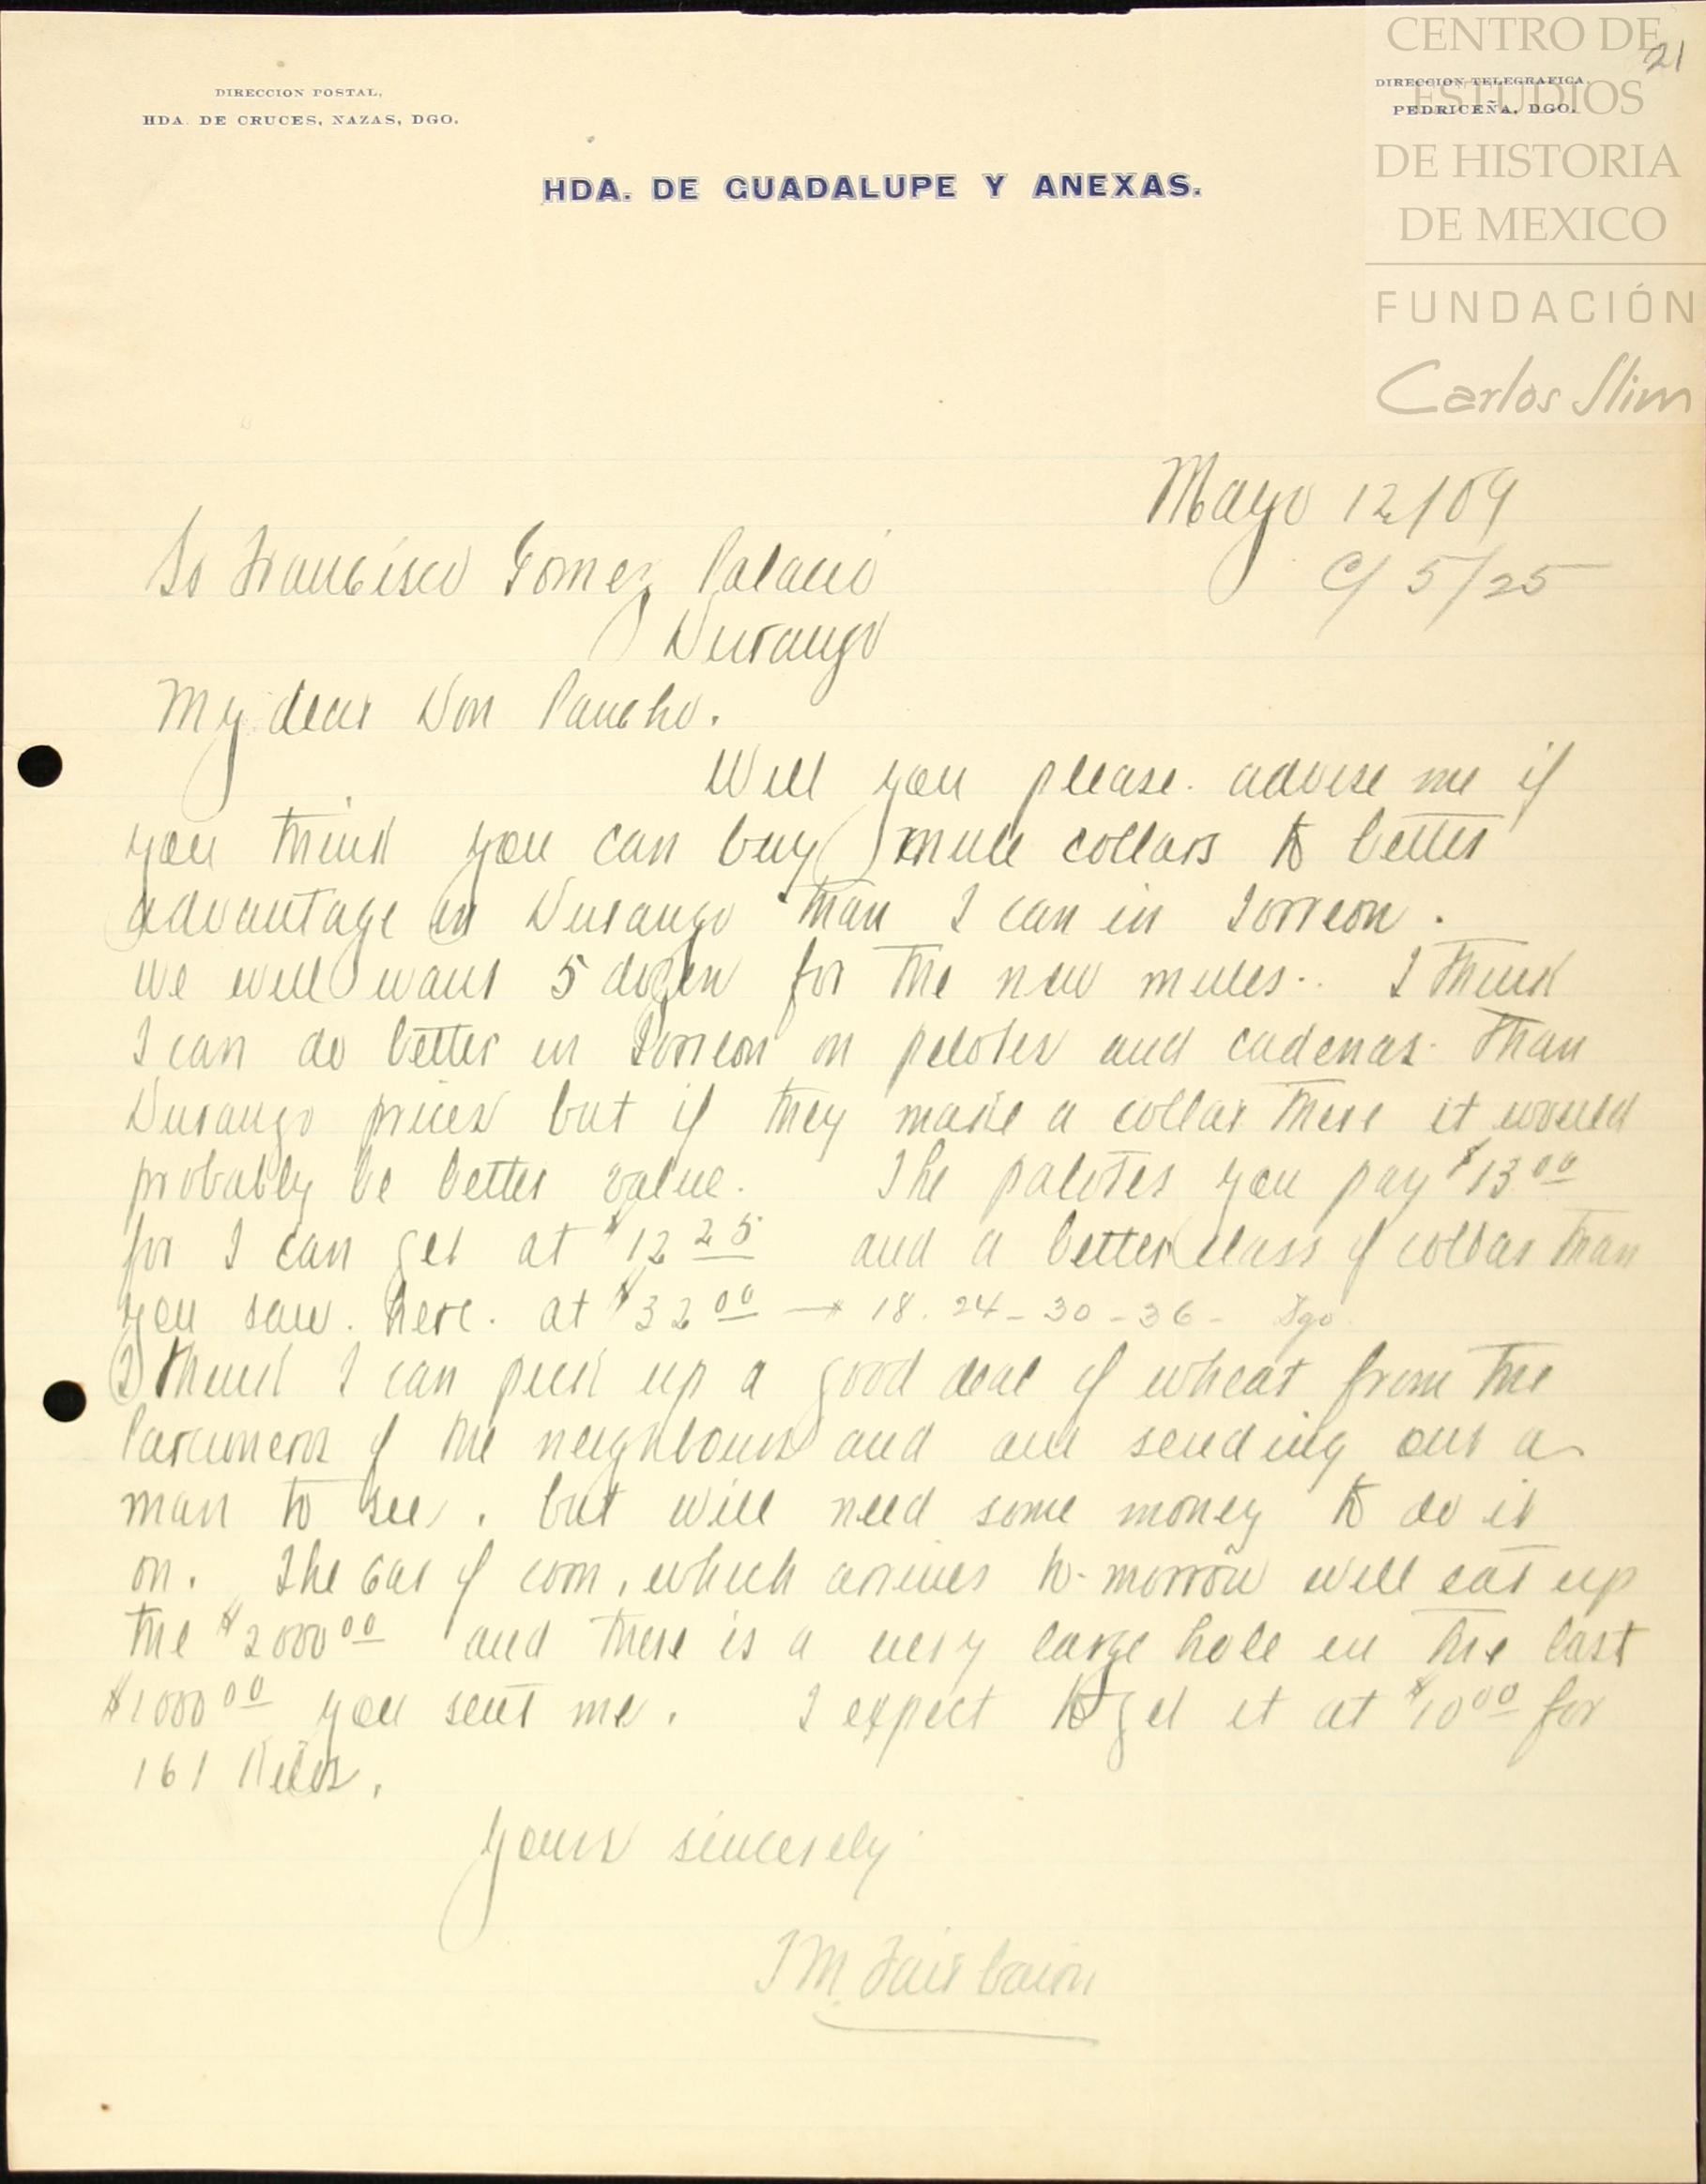 CENTRO DE
ESTUDIOS
DE HISTORIA
DE MEXICO
FUNDACIÓN
Carlos Slim
21
DIRECCION POSTAL,
HDA. DE CRUCES, NAZAS, DGO.
DIRECCION TELEGRAFICA,
PEDRICEÑA, DGO.
HDA. DE GUADALUPE Y ANEXAS.
Mayo 12/09
C/ 5/25
Francisco Gomez Palacio
Durango
My dear Don Pancho.
Will you please. advise me if
you think you can buy mule collars to better
advantage in Durango than I can in Torreon.
We will want 5 dozen for the new mules. I think
I can do better in Torreon on pelotes and cadenas than
Durango prices but if they make a collar there it would
probably be better value. The palotes you pay $13 00
for I can get at $12 25 and a better class of collar than
you saw. here. at $32 00 → 18. 24 - 30 - 36 - Dgo
I think I can pick up a good deal of wheat from the
of the neighbours and am sending out a
man to see. but will need some money to do it
on. The car of corn, which arrives to-morrow will eat up
the $2000 00 and there is a very large hole in the last
$1000 00 you sent me. I expect to get it at $10 00 for
161 Kilos.
Yours sincerely
J M Fairbairn